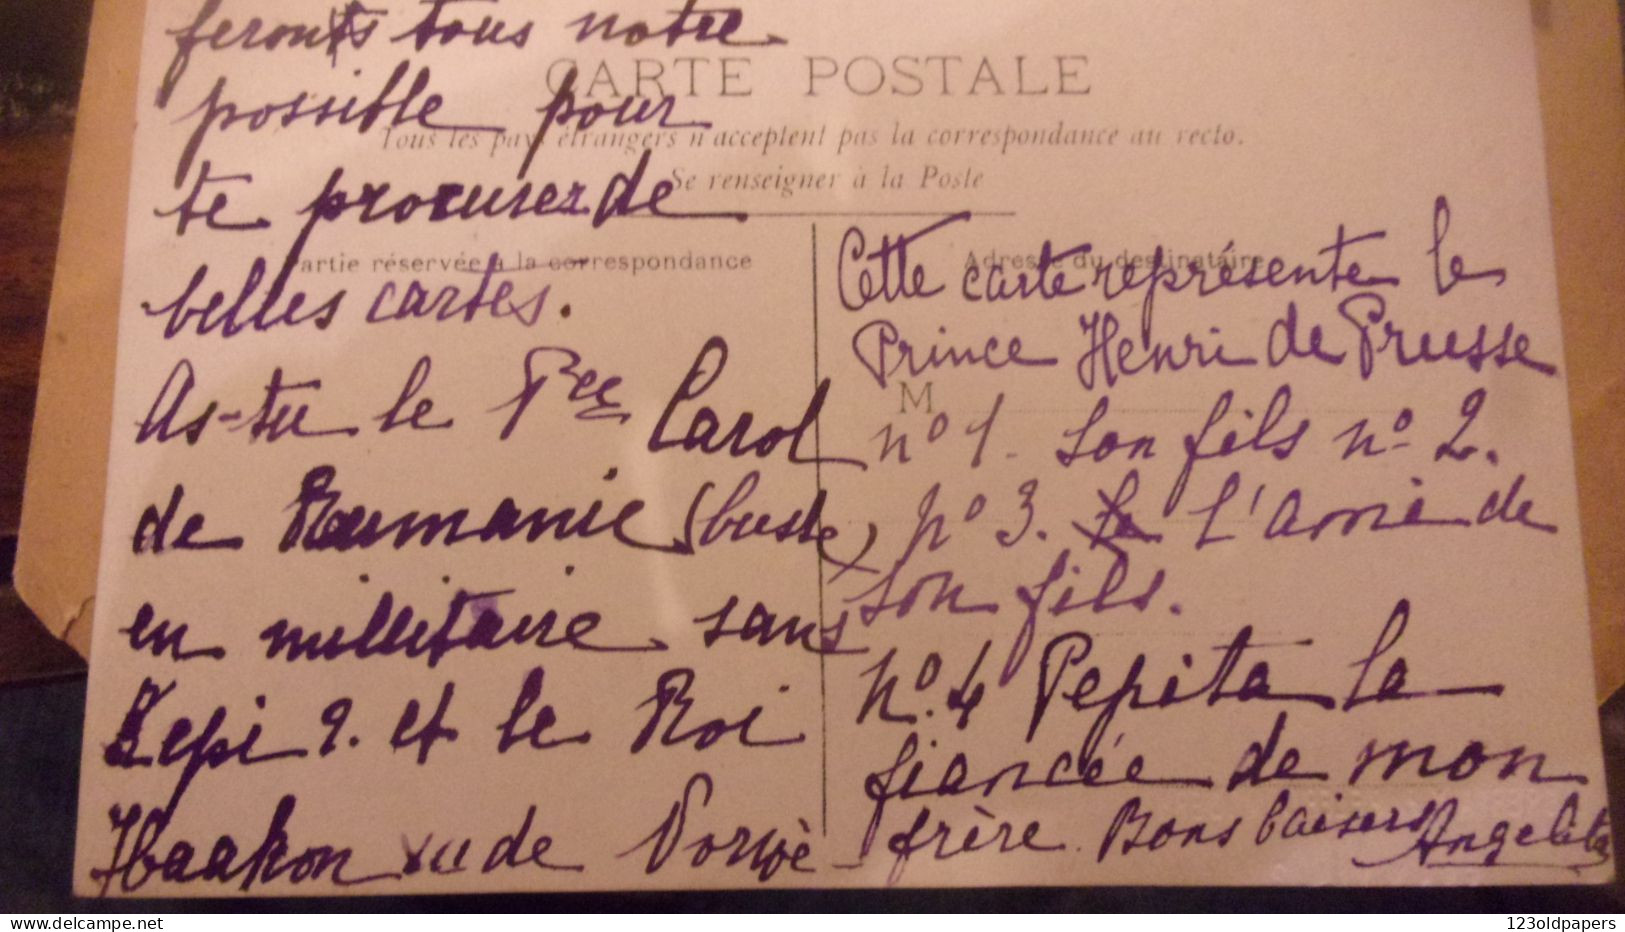 feronts tous notre
possible pour
te procurer de
belles cartes.
As-tu le Pce Carol
de Roumanie (buste)
en millitaire sans
Kepi?. et le Roi
Haakon de Norvè
CARTE POSTALE
Tous les pays étrangers n'acceptent pas la correspondance au recto.
Se renseigner à la Poste
Partie réservée à la correspondance
Adresse du destinataire
M
Cette carte représente le
Prince Henri de Prusse
nº 1. Son fils nº 2.
nº 3. L'amie de
son fils.
Nº. 4 Pepita la
fiancée de mon
frère. Bons baisers Angelita
123oldpapers